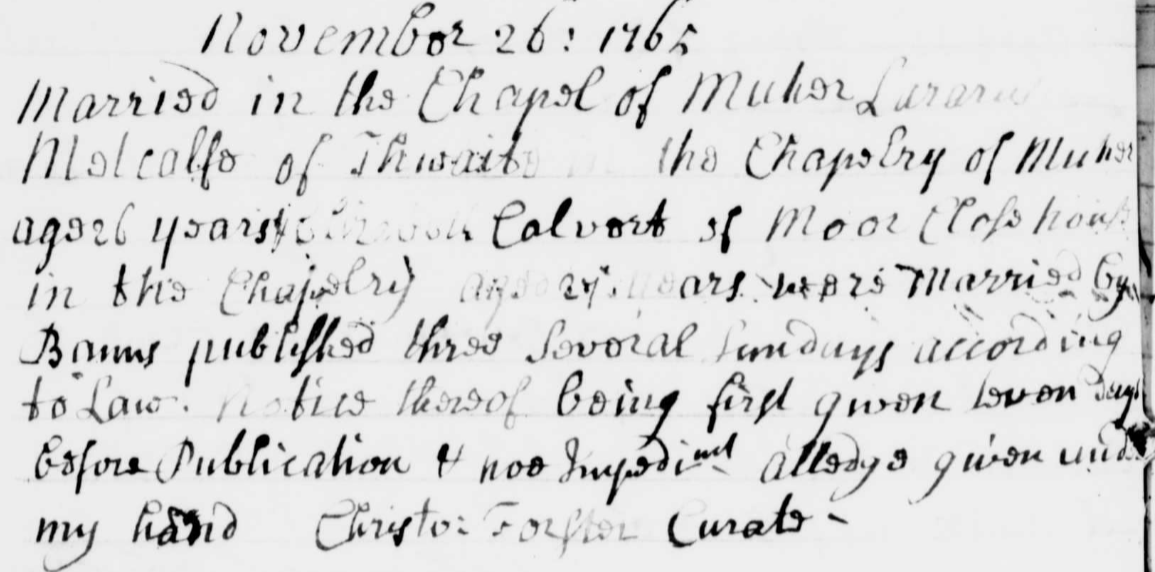 November 26: 1765
Married in the Chapel of Muker Lazarus
Metcalfe of Thwaite the Chapelry of Muker
age 26 years & Calvert of Moor Close house
in the Chapelry age 27 years were Married by
Banns published three several Sundays according
to Law. Notice thereof being first given seven days
before Publication & noe Impedimt alledge given und
my hand Christo: Forster Curate -